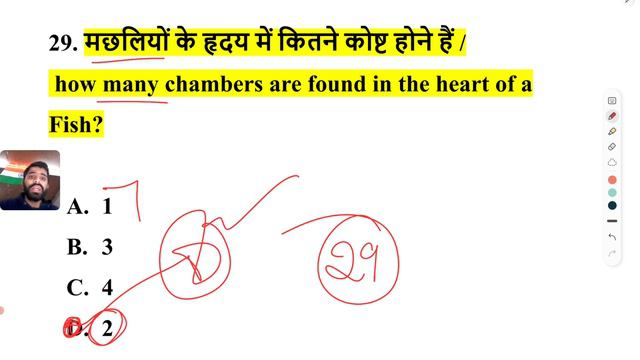 29. मछलियों के हृदय में कितने कोष्ट होने हैं /
how many chambers are found in the heart of a
Fish?
A. 1
B. 3
C. 4
D. 2
29